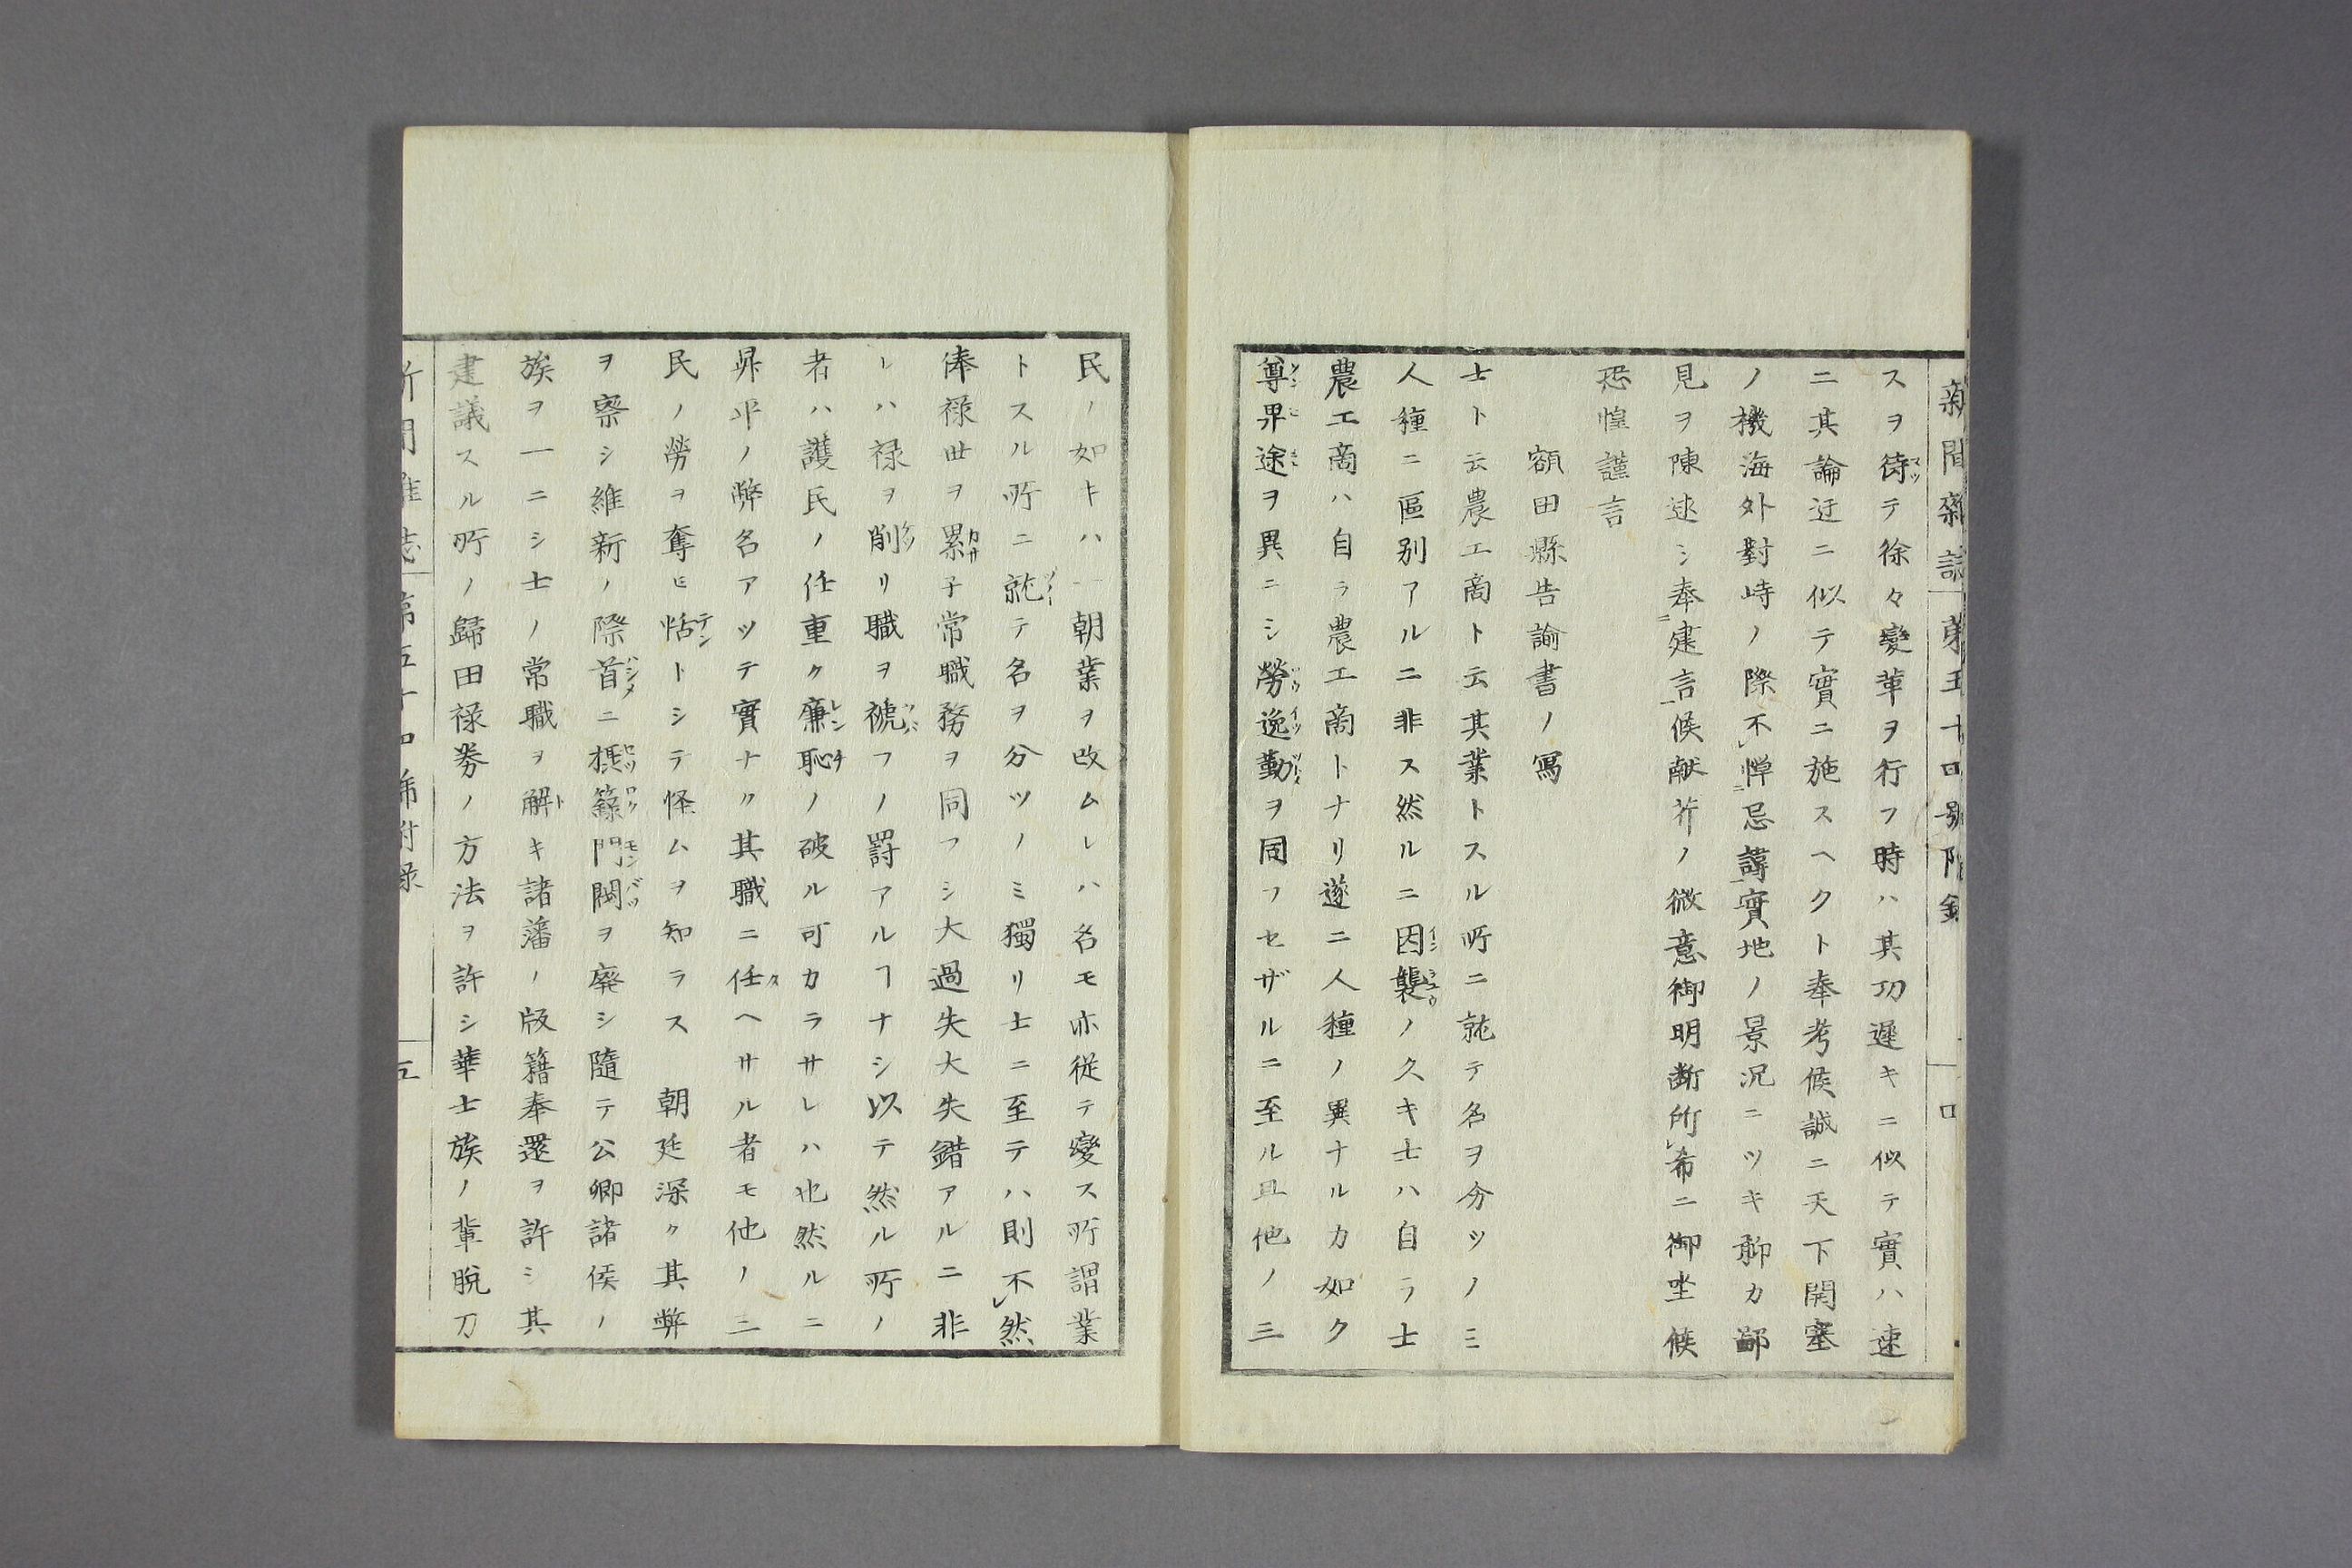 新聞雜誌 第五十四號附錄 四
スヲ待テ徐々變革ヲ行フ時ハ其功遲キニ似テ實ハ速
ニ其論迂ニ似テ實ニ施スヘクト奉考候誠ニ天下開塞
ノ機海外對峙ノ際不憚忌諱實地ノ景況ニツキ聊カ鄙
見ヲ陳述シ奉建言候献芹ノ微意御明断所希ニ御坐候
恐惶謹言
額田縣告諭書ノ寫
士ト云農工商ト云其業トスル所ニ就テ名ヲ分ツノミ
人種ニ區别アルニ非ス然ルニ因襲ノ久キ士ハ自ラ士
農工商ハ自ラ農工商トナリ遂ニ人種ノ異ナルカ如ク
尊卑途ヲ異ニシ勞逸勤ヲ同フセザルニ至ル且他ノ三
民ノ如キハ一朝業ヲ改ムレハ名モ亦従テ變ス所謂業
トスル所ニ就テ名ヲ分ツノミ獨リ士ニ至テハ則不然
俸禄世ヲ累子常職務ヲ同フシ大過失大失錯アルニ非
レハ禄ヲ削リ職ヲ褫フノ罰アルヿナシ以テ然ル所ノ
者ハ護民ノ任重ク廉恥ノ破ル可カラサレハ也然ルニ
昇平ノ弊名アツテ實ナク其職ニ任ヘサル者モ他ノ三
民ノ勞ヲ奪ヒ恬トシテ怪ムヲ知ラス 朝廷深ク其弊
ヲ察シ維新ノ際首ニ摂籙門閥ヲ廃シ隨テ公卿諸侯ノ
族ヲ一ニシ士ノ常職ヲ解キ諸藩ノ版籍奉還ヲ許シ其
建議スル所ノ歸田禄劵ノ方法ヲ許シ華士族ノ輩脱刀
新聞雜誌 第五十四號附録 五